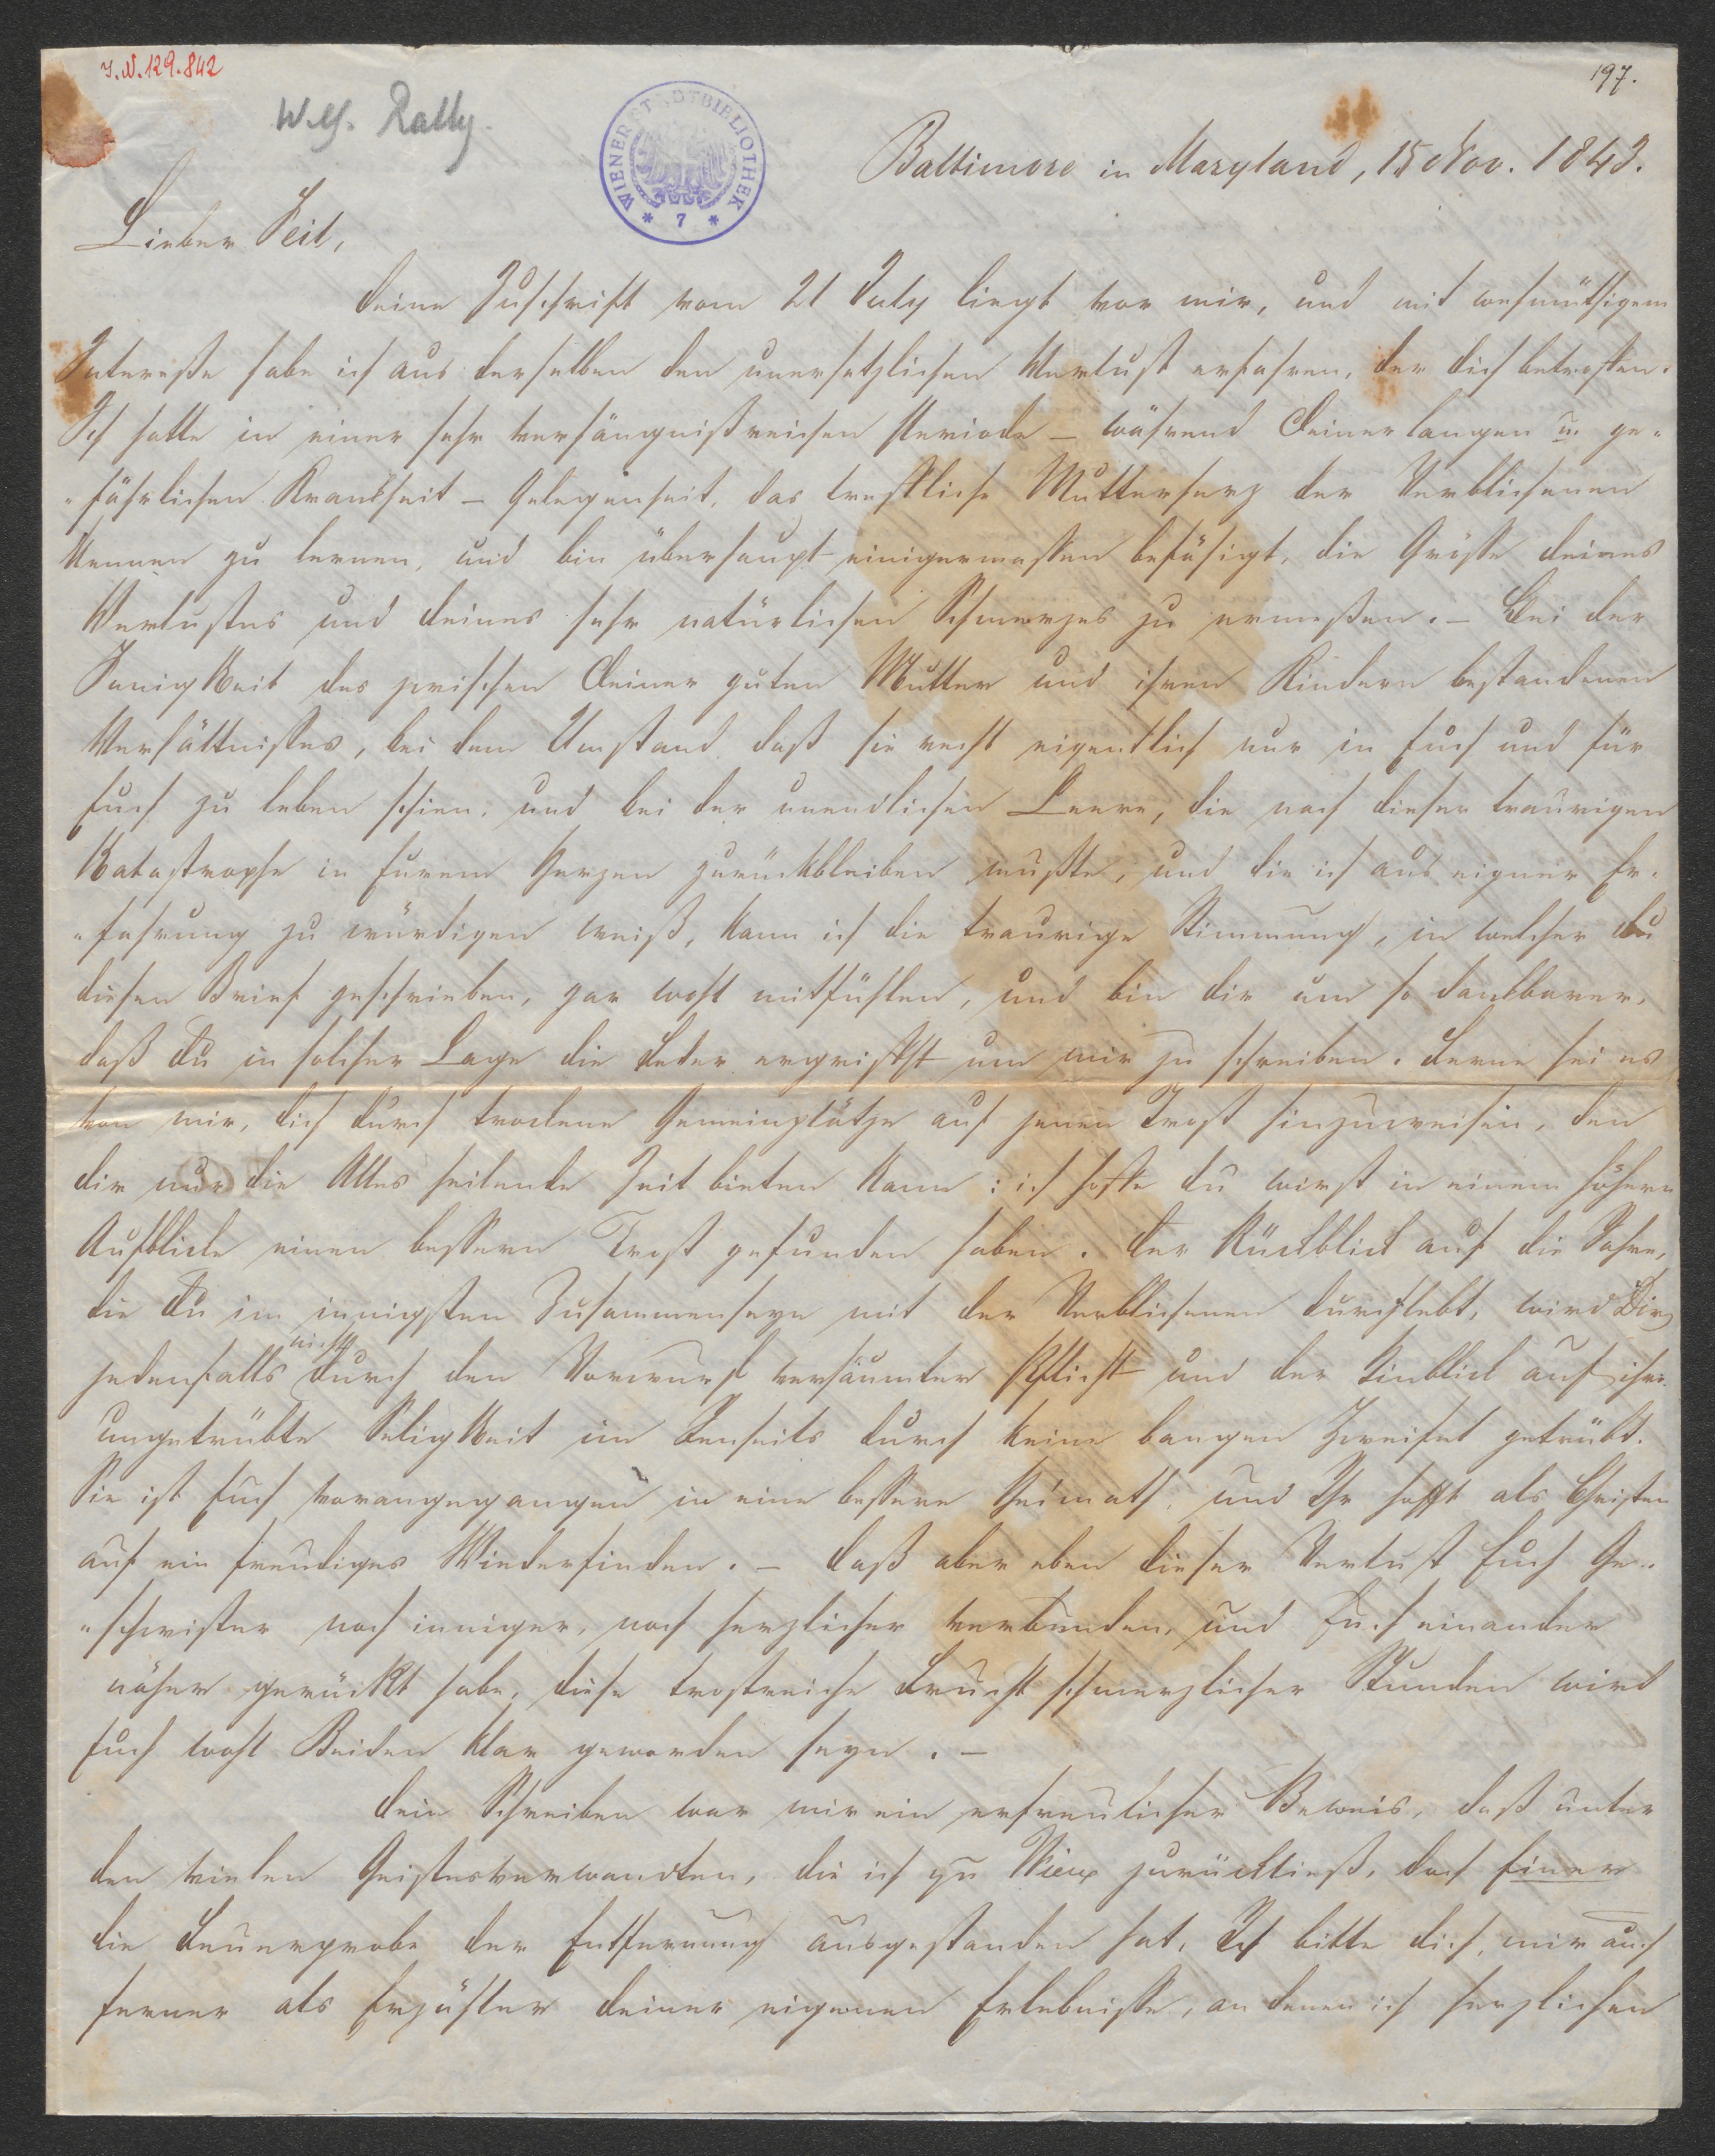 I.N. 129.842
197.
W. Rally.
WIENER STADTBIBLIOTHEK
* 7 *
Baltimore in Maryland, 15 Nov. 1843.
Lieber Feil,
Deine Zuschrift vom 21 July liegt vor mir, und mit wehmüthigem
Interesse habe ich aus derselben den unersetzlichen Verlust erfahren, der dich betroffen.
Ich hatte in einer sehr verhängnißreichen Periode – während Deiner langen u. ge-
-fährlichen Krankheit – Gelegenheit, das treffliche Mutterherz der Verblichenen
kennen zu lernen, und bin überhaupt einigermassen befähigt, die Größe deines
Verlustes und deines sehr natürlichen Schmerzes zu ermeßen. – Bei der
Innigkeit des zwischen Deiner guten Mutter und ihren Kindern bestandenen
Verhältnisses, bei dem Umstand daß sie recht eigentlich nur in Euch und für
Euch zu leben schien, und bei der unendlichen Leere, die nach dieser traurigen
Katastrophe in Eurem Herzen zurückbleiben mußte, und die ich aus eigner Er-
-fahrung zu würdigen weiß, kann ich die traurige Stimmung, in welcher du
diesen Brief geschrieben, gar wohl mitfühlen, und bin dir um so dankbarer,
daß du in solcher Lage die Feder ergriffst um mir zu schreiben. Ferne sei es
von mir, dich durch trockene Gemeinplätze auf jenen Trost hinzuweisen, den
dir nur die Alles heilende Zeit bieten kann: ich hoffe du wirst in einem höhern
Aufblicke einen bessern Trost gefunden haben. Der Rückblick auf die Jahre,
die du im innigsten Zusammenseyn mit der Verblichenen durchlebt, wird Dir
jedenfalls nicht durch den Vorwurf versäumter Pflicht und der Hinblick auf ihre
ungetrübte Seligkeit im Jenseits durch keine bangen Zweifel getrübt.
Sie ist Euch vorangegangen in eine bessere Heimath, und Ihr hofft als Christen
auf ein freudiges Wiederfinden. – Daß aber eben dieser Verlust Euch Ge-
-schwister noch inniger, noch herzlicher verbunden, und Euch einander
näher gerückt habe, diese trostreiche Frucht schmerzlicher Stunden wird
Euch wohl Beiden klar geworden seyn. –
Dein Schreiben war mir ein erfreulicher Beweis, daß unter
den vielen Geistesverwandten, die ich zu Wien zurückließ, doch Einer
die Feuerprobe der Entfernung ausgestanden hat. Ich bitte dich, mir auch
ferner als Erzähler deiner eigenen Erlebnisse, an denen ich herzlichen